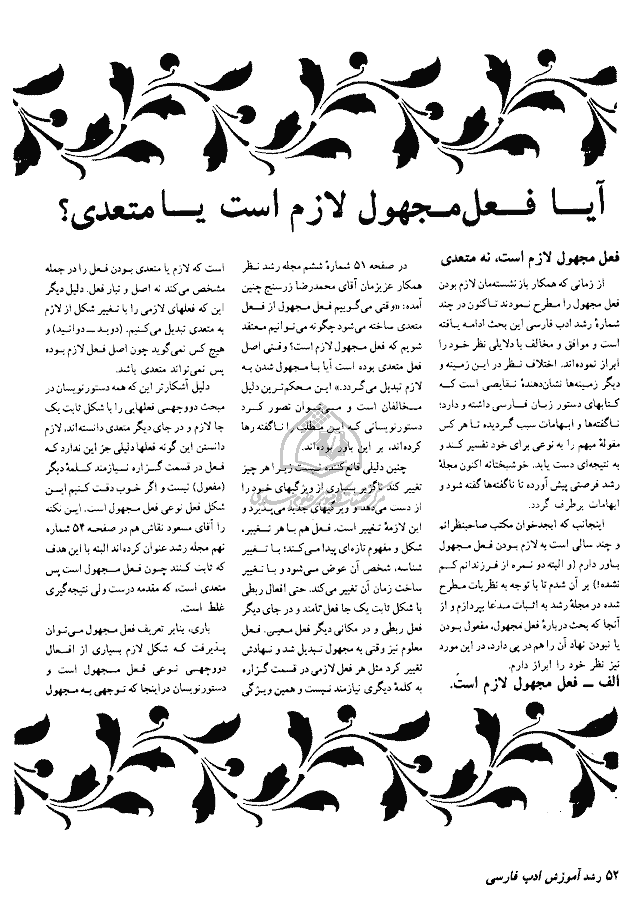 آیا فعل مجهول لازم است یا متعدی؟
فعل مجهول لازم است، نه متعدی
از زمانی که همکار بازنشسته‌مان لازم بودن
فعل مجهول را مطرح نمودند تاکنون در چند
شمارهٔ رشد ادب فارسی این بحث ادامه یافته
است و موافق و مخالف با دلایلی نظر خود را
ابراز نموده‌اند. اختلاف نظر در این زمینه و
دیگر زمینه‌ها نشان‌دهندهٔ نقایصی است که
کتابهای دستور زبان فارسی داشته و دارد؛
ناگفته‌ها و ابهامات سبب گردیده تا هر کس
مقولهٔ مبهم را به نوعی برای خود تفسیر کند و
به نتیجه‌ای دست یابد. خوشبختانه اکنون مجلهٔ
رشد فرصتی پیش آورده تا ناگفته‌ها گفته شود و
ابهامات برطرف گردد.
اینجانب که ابجدخوان مکتب صاحبنظرانم
و چند سالی است به لازم بودن فعل مجهول
باور دارم (و البته دو نمره از فرزندانم کم
نشده!) بر آن شدم تا با توجه به نظریات مطرح
شده در مجلهٔ رشد به اثبات مدعا بپردازم و از
آنجا که بحث دربارهٔ فعل مجهول، مفعول بودن
یا نبودن نهاد آن را هم در پی دارد، در این مورد
نیز نظر خود را ابراز دارم.
الف ــ فعل مجهول لازم است.
در صفحه ۵۱ شمارهٔ ششم مجله رشد نظر
همکار عزیزمان آقای محمدرضا زرسنج چنین
آمده: «وقتی می‌گوییم فعل مجهول از فعل
متعدی ساخته می‌شود چگونه می‌توانیم معتقد
شویم که فعل مجهول لازم است؟ وقتی اصل
فعل متعدی بوده است آیا با مجهول شدن به
لازم تبدیل می‌گردد.» این محکم‌ترین دلیل
مخالفان است و می‌توان تصور کرد
دستورنویسانی که این مطلب را ناگفته رها
کرده‌اند، بر این باور بوده‌اند.
چنین دلیلی قانع‌کننده نیست زیرا هر چیز
تغییر کند ناگزیر بسیاری از ویژگیهای خود را
از دست می‌دهد و ویژگیهای جدید می‌پذیرد و
این لازمهٔ تغییر است. فعل هم با هر تغییر،
شکل و مفهوم تازه‌ای پیدا می‌کند؛ با تغییر
شناسه، شخص آن عوض می‌شود و با تغییر
ساخت زمان آن تغییر می‌کند. حتی افعال ربطی
با شکل ثابت یک جا فعل تامند و در جای دیگر
فعل ربطی و در مکانی دیگر فعل معینی. فعل
معلوم نیز وقتی به مجهول تبدیل شد و نهادش
تغییر کرد مثل هر فعل لازمی در قسمت گزاره
به کلمهٔ دیگری نیازمند نیست و همین ویژگی
است که لازم یا متعدی بودن فعل را در جمله
مشخص می‌کند نه اصل و تبار فعل. دلیل دیگر
این که فعلهای لازمی را با تغییر شکل از لازم
به متعدی تبدیل می‌کنیم. (دوید ــ دوانید) و
هیچ کس نمی‌گوید چون اصل فعل لازم بوده
پس نمی‌تواند متعدی باشد.
دلیل آشکارتر این که همه دستورنویسان در
مبحث دووجهیی فعلهایی را با شکل ثابت یک
جا لازم و در جای دیگر متعدی دانسته‌اند، لازم
دانستن این گونه فعلها دلیلی جز این ندارد که
فعل در قسمت گزاره نیازمند کلمهٔ دیگر
(مفعول) نیست و اگر خوب دقت کنیم این
شکل فعل نوعی فعل مجهول است. این نکته
را آقای مسعود نقاش هم در صفحه ۵۴ شماره
نهم مجله رشد عنوان کرده‌اند البته با این هدف
که ثابت کنند چون فعل مجهول است پس
متعدی است، که مقدمه درست ولی نتیجه‌گیری
غلط است.
باری، بنابر تعریف فعل مجهول می‌توان
پذیرفت که شکل لازم بسیاری از افعال
دووجهی نوعی فعل مجهول است و
دستورنویسان در اینجا که توجهی به مجهول
۵۲ رشد آموزش ادب فارسی